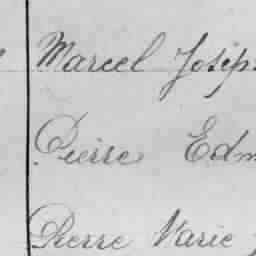 Marcel Josep
Pierre Edm
Pierre Marie